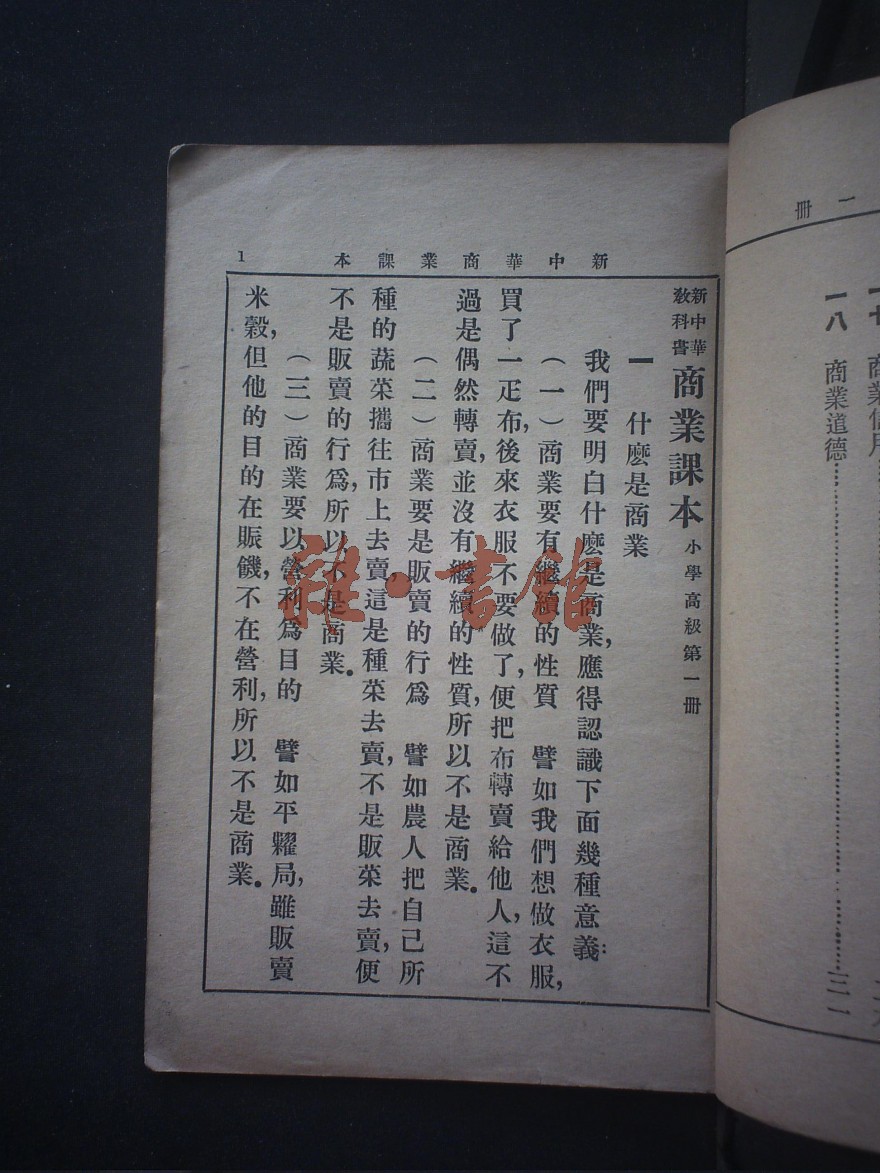 新中華商業課本
1
新中華
教科書
商業課本 小學高級第一册
一 什麽是商業
我們要明白什麽是商業,應得認識下面幾種意義:
(一)商業要有繼續的性質 譬如我們想做衣服,
買了一疋布,後來衣服不要做了,便把布轉賣給他人,這不
過是偶然轉賣,並沒有繼續的性質,所以不是商業。
(二)商業要是販賣的行爲 譬如農人把自己所
種的蔬菜攜往市上去賣,這是種菜去賣,不是販菜去賣,便
不是販賣的行爲,所以不是商業。
(三)商業要以營利爲目的 譬如平糶局,雖販賣
米穀,但他的目的在賑饑,不在營利,所以不是商業。
雜·書館
一册
一七 商業信用
一八 商業道德……三一